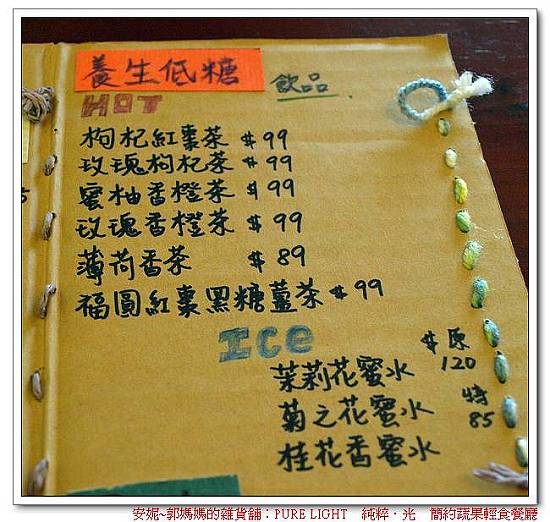 養生低糖
飲品
HOT
枸杞紅棗茶 $99
玫瑰枸杞茶 $99
蜜柚香橙茶 $99
玫瑰香橙茶 $99
薄荷香茶 $89
福圓紅棗黑糖薑茶 $99
ICe
$原
120
茉莉花蜜水
特
85
菊之花蜜水
桂花香蜜水
安妮~郭媽媽的雜貨舖：PURE LIGHT 純粹‧光 簡約蔬果輕食餐廳